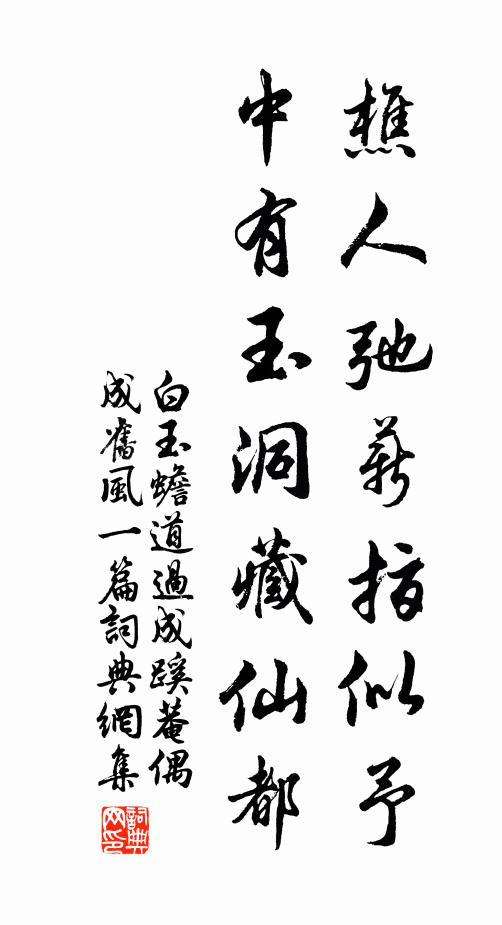 樵人弛薪指似予
中有玉洞藏仙都
白玉蟾道過成蹊菴偶
成舊風一篇詞典網集
詞典網印